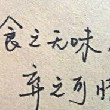 食之无味,
弃之可惜